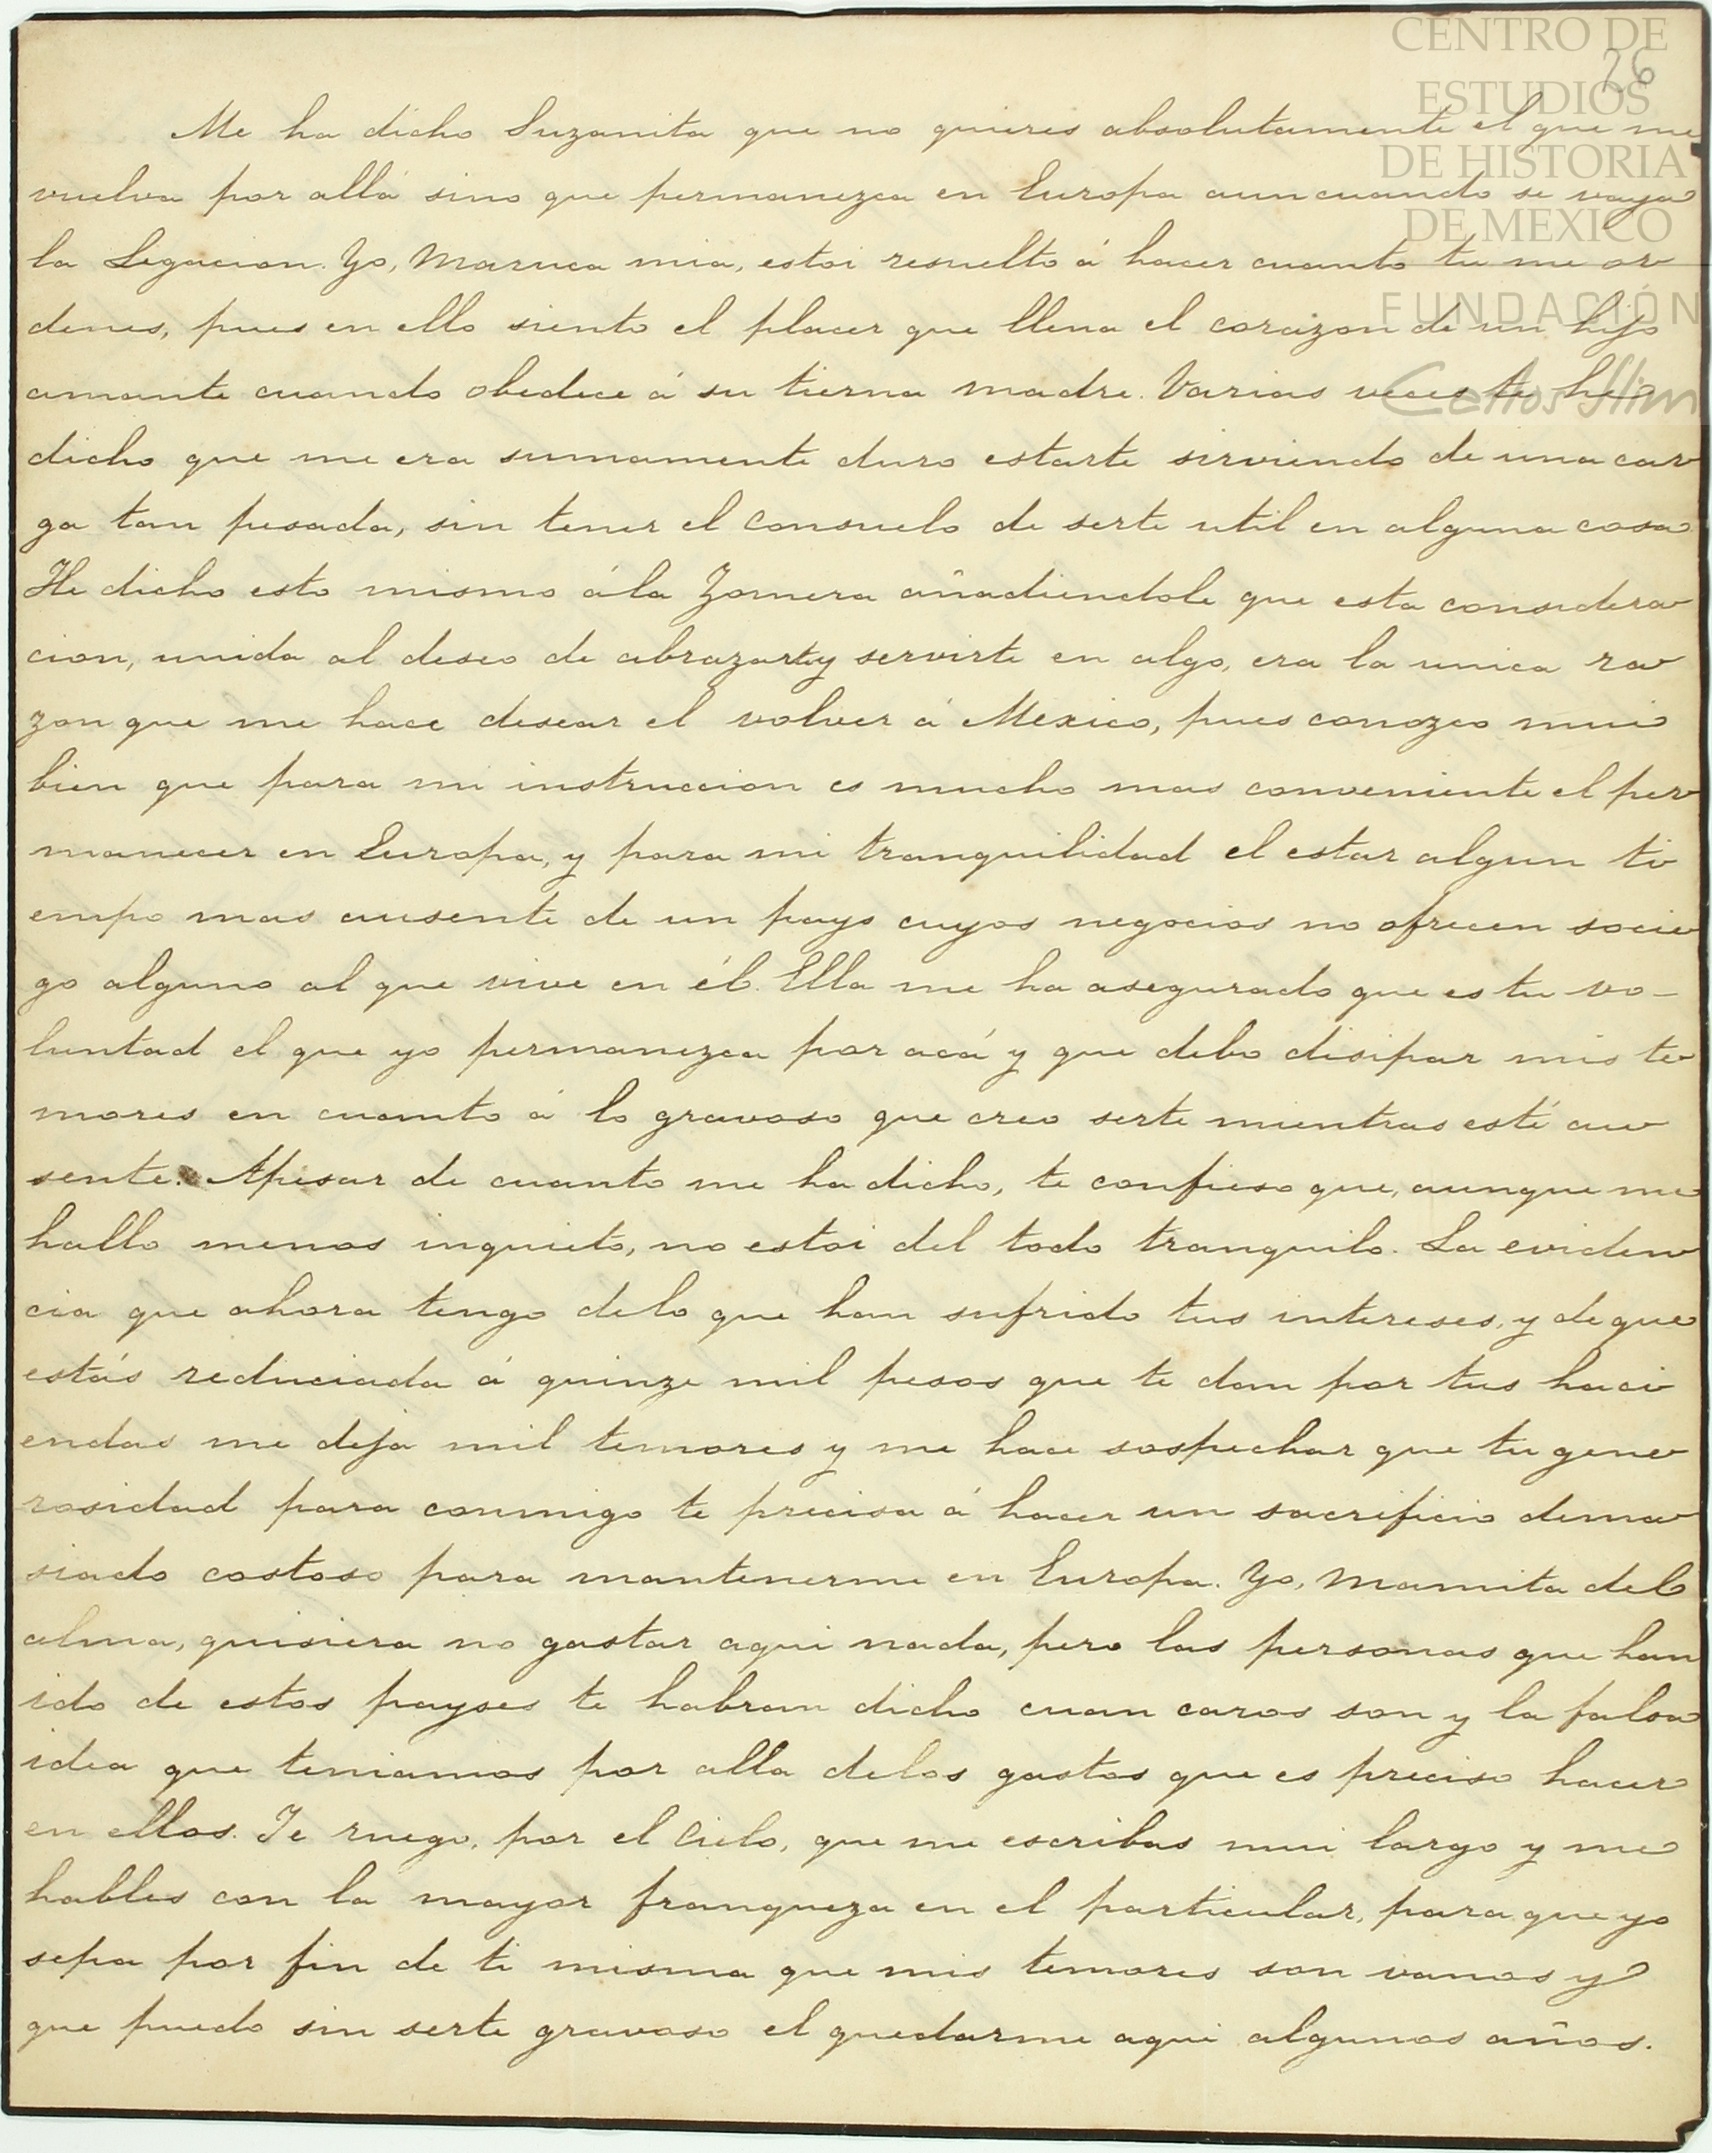 CENTRO DE
ESTUDIOS
DE HISTORIA
DE MEXICO
FUNDACIÓN
Carlos Slim
26
Me ha dicho Suzanita que no quieres absolutamente el que me
vuelva por allá sino que permanezca en Europa auncuando se vaya
la Legacion. Yo, Maruca mia, estoi resuelto á hacer cuanto tu me or
denes, pues en ello siento el placer que llena el corazon de un hijo
amante cuando obedece á su tierna madre. Varias veces te he
dicho que me era sumamente duro estarte sirviendo de una car
ga tan pesada, sin tener el consuelo de serte util en alguna cosa
He dicho esto mismo á la Zomera añadiendole que esta considera
cion, unida al deseo de abrazarte y servirte en algo, era la unica ra
zon que me hace desear el volver á Mexico, pues conozco mui
bien que para mi instruccion es mucho mas conveniente el per
manecer en Europa, y para mi tranquilidad el estar algun ti
empo mas ausente de un pays cuyos negocios no ofrecen socie
go alguno al que vive en él. Ella me ha asegurado que es tu vo-
luntad el que yo permanezca por acá y que debo disipar mis te
mores en cuanto á lo gravoso que creo serte mientras esté au
sente. Apesar de cuanto me ha dicho, te confieso que, aunque me
hallo menos inquieto, no estoi del todo tranquilo. La eviden
cia que ahora tengo delo que han sufrido tus intereses, y de que
estás reduciada á quinze mil pesos que te dan por tus haci
endas me deja mil temores y me hace sospechar que tu gene
rosidad para conmigo te precisa á hacer un sacrificio dema
siado costoso para mantenerme en Europa. Yo, Mamita del
alma, quisiera no gastar aqui nada, pero las personas que han
ido de estos payses te habran dicho cuan caros son y la falsa
idea que teniamos por alla delos gastos que es preciso hacer
en ellos. Te ruego, por el Cielo, que me escribas mui largo y me
hables con la mayor franqueza en el particular, para que yo
sepa por fin de ti misma que mis temores son vanos y
que puedo sin serte gravoso el quedarme aqui algunos años.